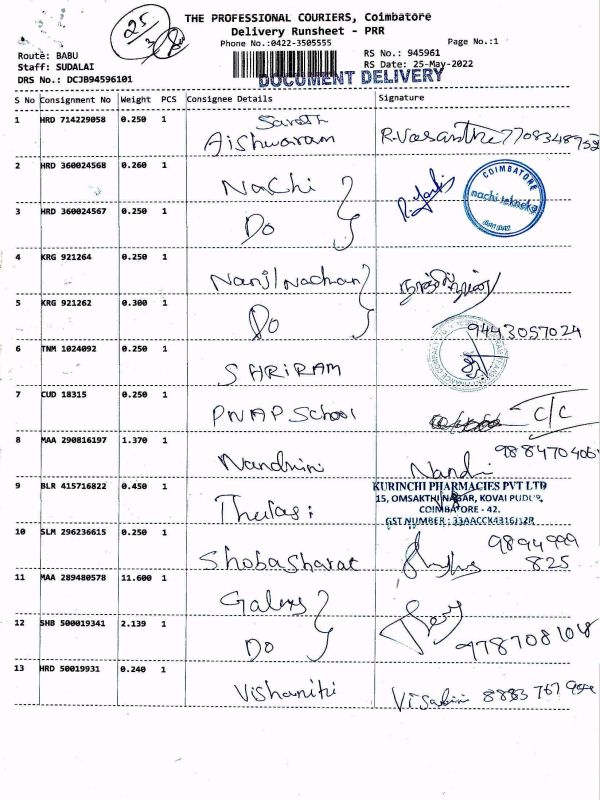 25
THE PROFESSIONAL COURIERS, Coimbatore
Delivery Runsheet - PRR
Phone No.:0422-3505555
Page No.:1
Route: BABU
RS No.: 945961
Staff: SUDALAI
RS Date: 25-May-2022
DRS No.: DCJB94596101
DOCUMENT DELIVERY
S No Consignment No Weight PCS Consignee Details Signature
1 HRD 714229058 0.250 1 Sarath
Aishwaram
2 HRD 360024568 0.260 1 NaChi
COIMBATORE
3 HRD 360024567 0.250 1 Do
4 KRG 921264 0.250 1 Nanjinachan
5 KRG 921262 0.300 1 Do
9443057024
6 TNM 1024092 0.250 1 SHRIRAM
7 CUD 18315 0.250 1 PNAP School C/C
8 MAA 290816197 1.370 1 Nandhini Nandi
9 BLR 415716822 0.450 1 Thulasi
KURINCHI PHARMACIES PVT LTD
15, OMSAKTHI NAGAR, KOVAI PUDUR,
COIMBATORE - 42.
10 SLM 296236615 0.250 1 Shobasharat 9894999
825
11 MAA 289480578 11.600 1 Galaxy
12 SHB 500019341 2.139 1 Do 9787081018
13 HRD 50019931 0.240 1